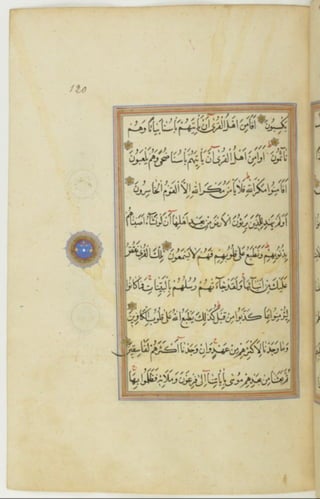 120
يكسبون افامن اهل القرى ان ياتيهم باسنا بياتا وهم
نائمون اوامن اهل القرى ان ياتيهم باسنا ضحى وهم يلعبون
افامنوا مكر الله فلا يامن مكر الله الا القوم الخاسرون
اولم يهد للذين يرثون الارض من بعد اهلها ان لو نشاء اصبناهم
بذنوبهم ونطبع على قلوبهم فهم لا يسمعون تلك القرى نقص
عليك من انبائها ولقد جاءتهم رسلهم بالبينات فما كانوا
ليؤمنوا بما كذبوا من قبل كذلك يطبع الله على قلوب الكافرين
وما وجدنا لاكثرهم من عهد وان وجدنا اكثرهم لفاسقين
ثم بعثنا من بعدهم موسى باياتنا الى فرعون وملائه فظلموا بها